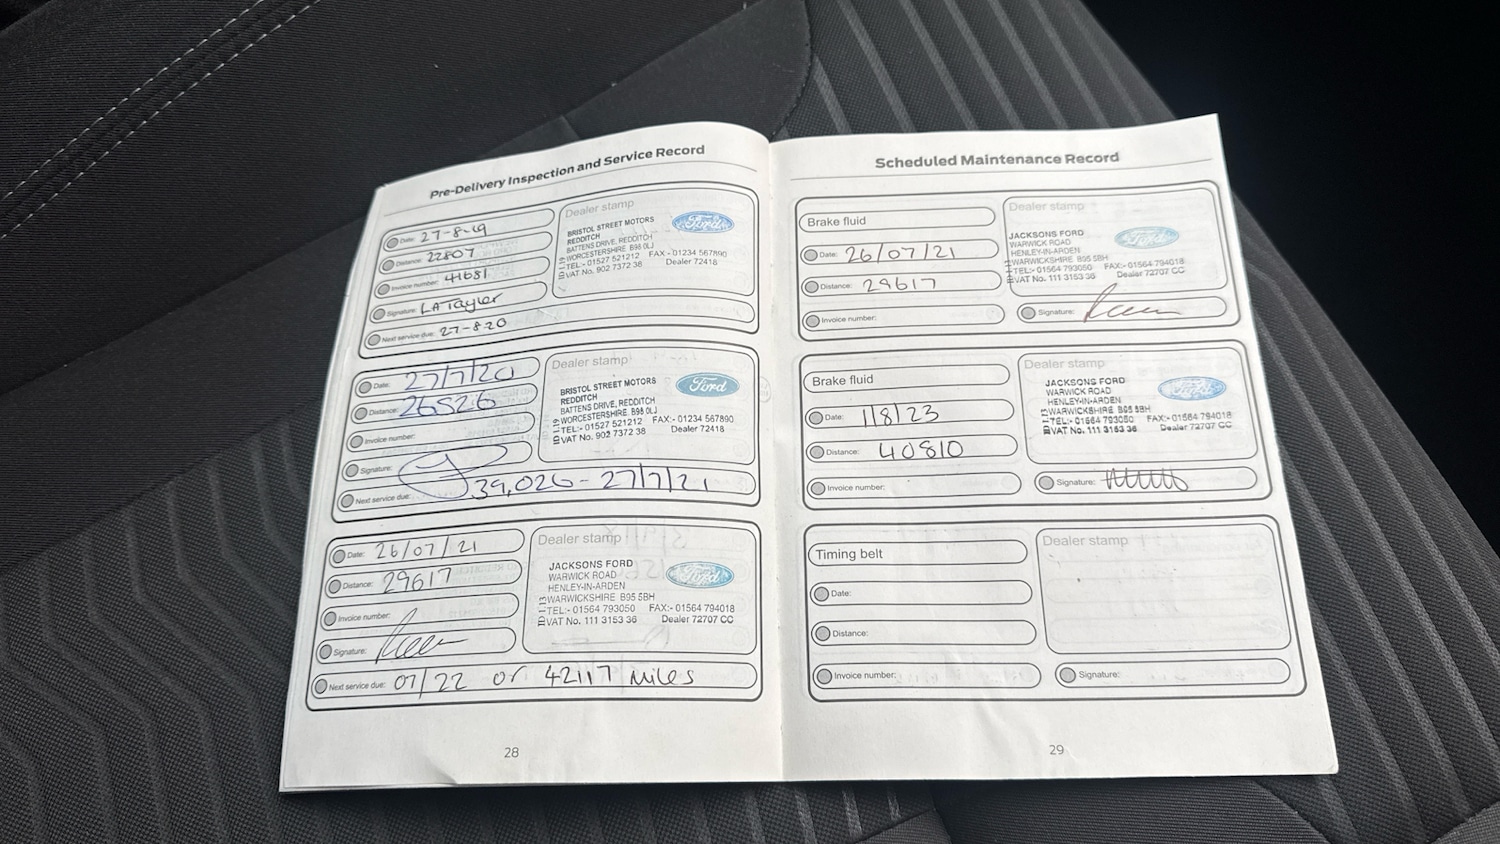 Pre-Delivery Inspection and Service Record
Date: 27-8-19
Distance: 22807
Invoice number: 41681
Signature: LA Tayler
Next service due: 27-8-20
Dealer stamp
BRISTOL STREET MOTORS
REDDITCH
BATTENS DRIVE, REDDITCH
WORCESTERSHIRE B98 0LJ
TEL:- 01527 521212 FAX - 01234 567890
VAT No. 902 7372 38 Dealer 72418
Ford
Date: 27/7/20
Distance: 26526
Invoice number:
Signature:
Next service due: 39,026 - 27/7/21
Dealer stamp
BRISTOL STREET MOTORS
REDDITCH
BATTENS DRIVE, REDDITCH
WORCESTERSHIRE B98 0LJ
TEL:- 01527 521212 FAX:- 01234 567890
VAT No. 902 7372 38 Dealer 72418
Ford
Date: 26/07/21
Distance: 29617
Invoice number:
Signature:
Next service due: 07/22 or 42117 miles
Dealer stamp
JACKSONS FORD
WARWICK ROAD
HENLEY-IN-ARDEN
WARWICKSHIRE B95 5BH
TEL:- 01564 793050 FAX:- 01564 794018
VAT No. 111 3153 36 Dealer 72707 CC
Ford
28
Scheduled Maintenance Record
Brake fluid
Date: 26/07/21
Distance: 29617
Invoice number:
Dealer stamp
JACKSONS FORD
WARWICK ROAD
HENLEY-IN-ARDEN
WARWICKSHIRE B95 5BH
TEL:- 01564 793050 FAX:- 01564 794018
VAT No. 111 3153 36 Dealer 72707 CC
Ford
Signature:
Brake fluid
Date: 1/8/23
Distance: 40810
Invoice number:
Dealer stamp
JACKSONS FORD
WARWICK ROAD
HENLEY-IN-ARDEN
WARWICKSHIRE B95 5BH
TEL:- 01564 793050 FAX:- 01564 794018
VAT No. 111 3153 36 Dealer 72707 CC
Ford
Signature:
Timing belt
Date:
Distance:
Invoice number:
Dealer stamp
Signature:
29